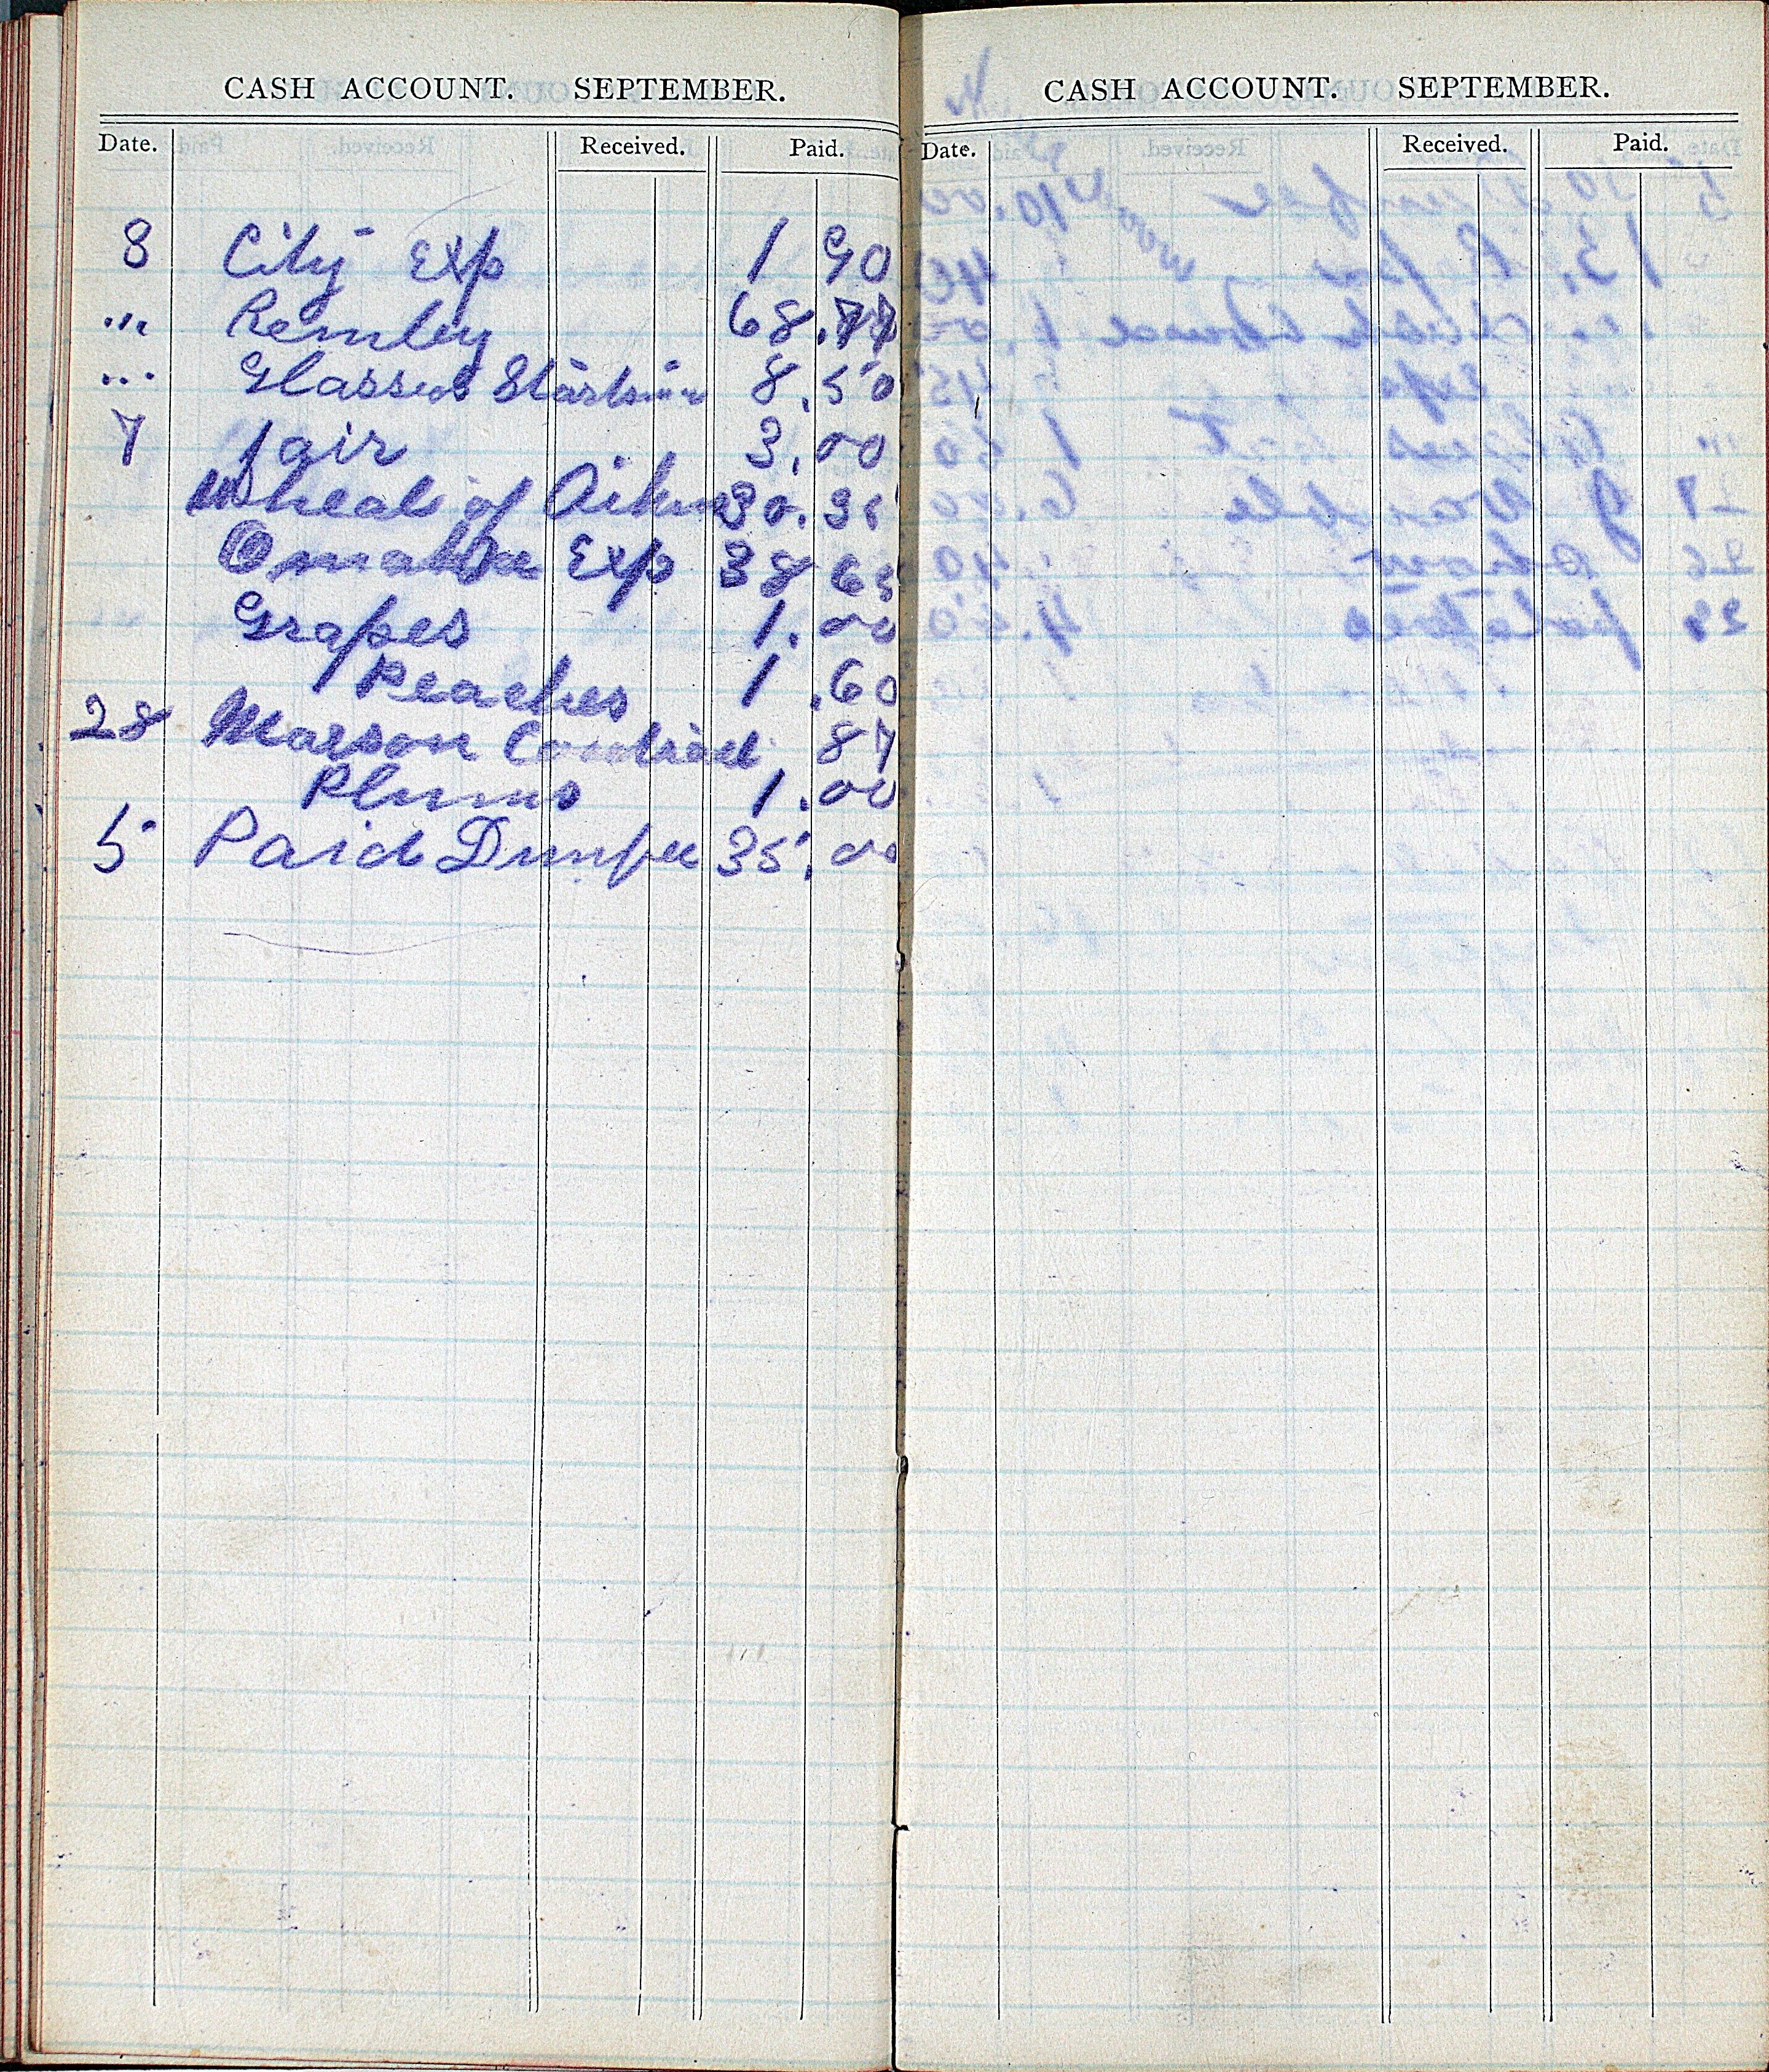 CASH ACCOUNT. SEPTEMBER.
Date. Received. Paid.
8 City Exp 1 90
"' Remley 68.77
... Glasses 8.50
7 fair 3.00
Wheal of 30.35
Omaha Exp 38 65
Grapes 1.00
Peaches 1.60
28 Marson Contract 87
Plums 1.00
5 Paid Dunfee 35.00
CASH ACCOUNT. SEPTEMBER.
Date. Received. Paid.